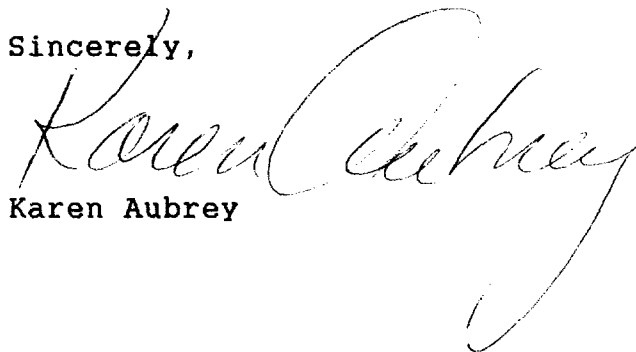 Sincerely,
Karen Aubrey
Karen Aubrey